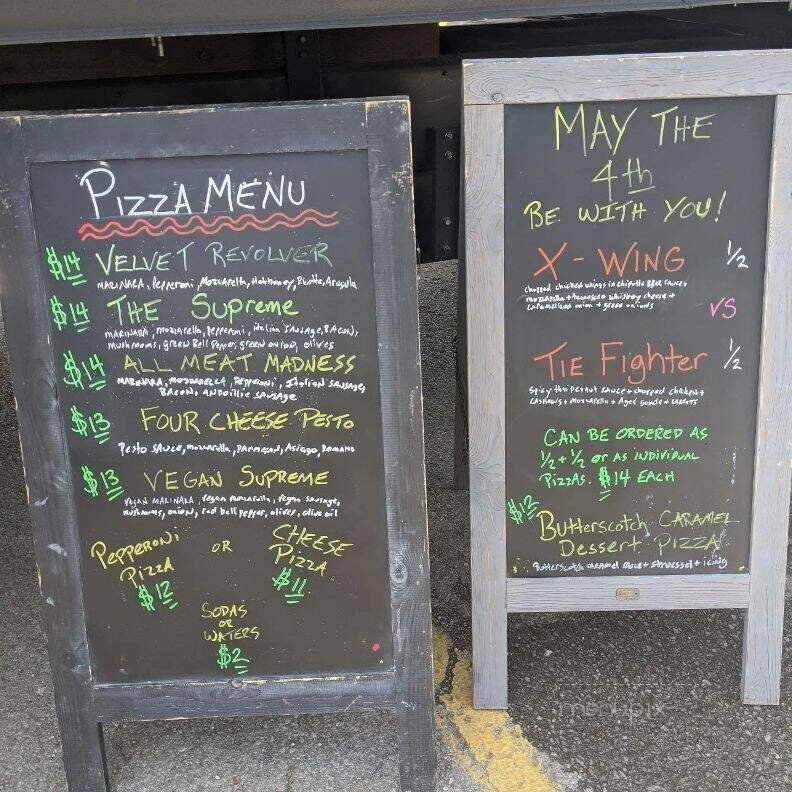 PIZZA MENU
$14 VELVET REVOLVER
MARINARA, Pepperoni, Mozzarella, Hot Honey, Ricotta, Arugula
$14 THE Supreme
MARINARA, mozzarella, pepperoni, italian SAUSAGE, BACON,
Mushrooms, Green Bell Pepper, green onion, olives
$14 ALL MEAT MADNESS
MARINARA, MOZZARELLA, Pepperoni, Italian SAUSAGE,
BACON, ANDOUILLE SAUSAGE
$13 FOUR CHEESE PESTO
Pesto SAUCE, mozzarella, PARMESAN, Asiago, ROMANO
$13 VEGAN SUPREME
VEGAN MARINARA, vegan mozzarella, vegan sausage,
mushrooms, onion, red bell pepper, olives, olive oil
PEPPERONI PIZZA
$12
OR
CHEESE PIZZA
$11
SODAS
OR
WATERS
$2
MAY THE
4th
BE WITH YOU!
X-WING 1/2
chopped chicken wings in chipotle BBQ sauce +
mozzarella + tennessee whiskey cheese +
caramelized onion + green onions
VS
TIE Fighter 1/2
Spicy thai peanut sauce + chopped chicken +
CASHEWS + Mozzarella + Aged gouda + CARROTS
CAN BE ORDERED AS
1/2 + 1/2 or AS INDIVIDUAL
PIZZAS. $14 EACH
$12 Butterscotch CARAMEL
Dessert PIZZA
Butterscotch caramel sauce + streussel + icing
menupix